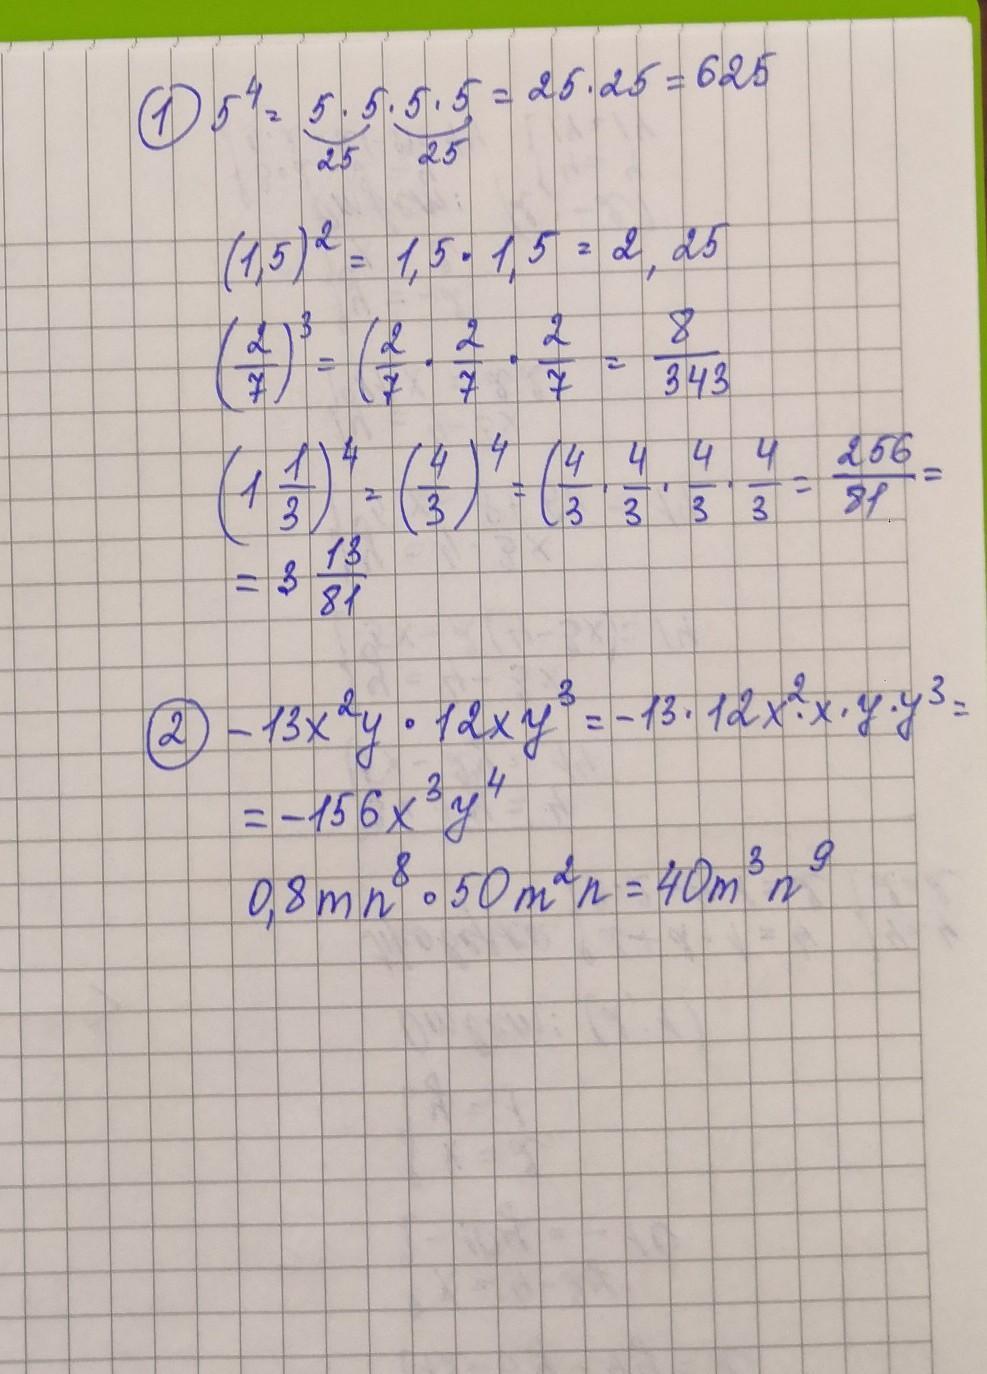 ① 5⁴ = 5 · 5 · 5 · 5 = 25 · 25 = 625
25 25
(1,5)² = 1,5 · 1,5 = 2,25
(2/7)³ = (2/7 · 2/7 · 2/7 = 8/343
(1 1/3)⁴ = (4/3)⁴ = (4/3 · 4/3 · 4/3 · 4/3 = 256/81 =
= 3 13/81
② -13x²y · 12xy³ = -13 · 12x² · x · y · y³ =
= -156x³y⁴
0,8mn⁸ · 50m²n = 40m³n⁹